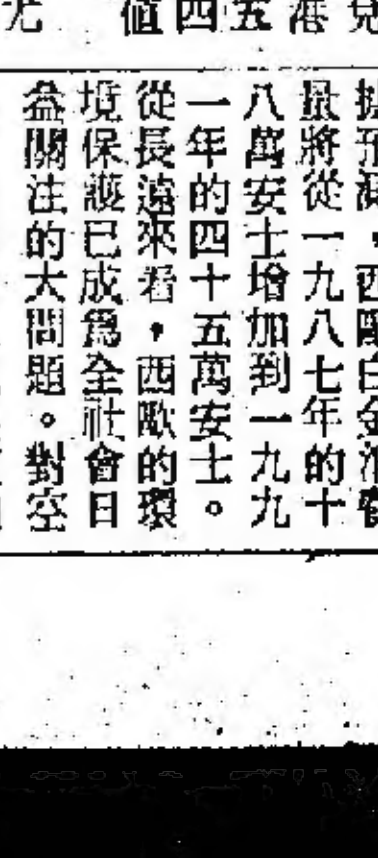 兌
港
五
四
值
尤
據預測，西歐白金消費
量將從一九八七年的十
八萬安士增加到一九九
一年的四十五萬安士。
從長遠來看，西歐的環
境保護已成爲全社會日
益關注的大問題。對空